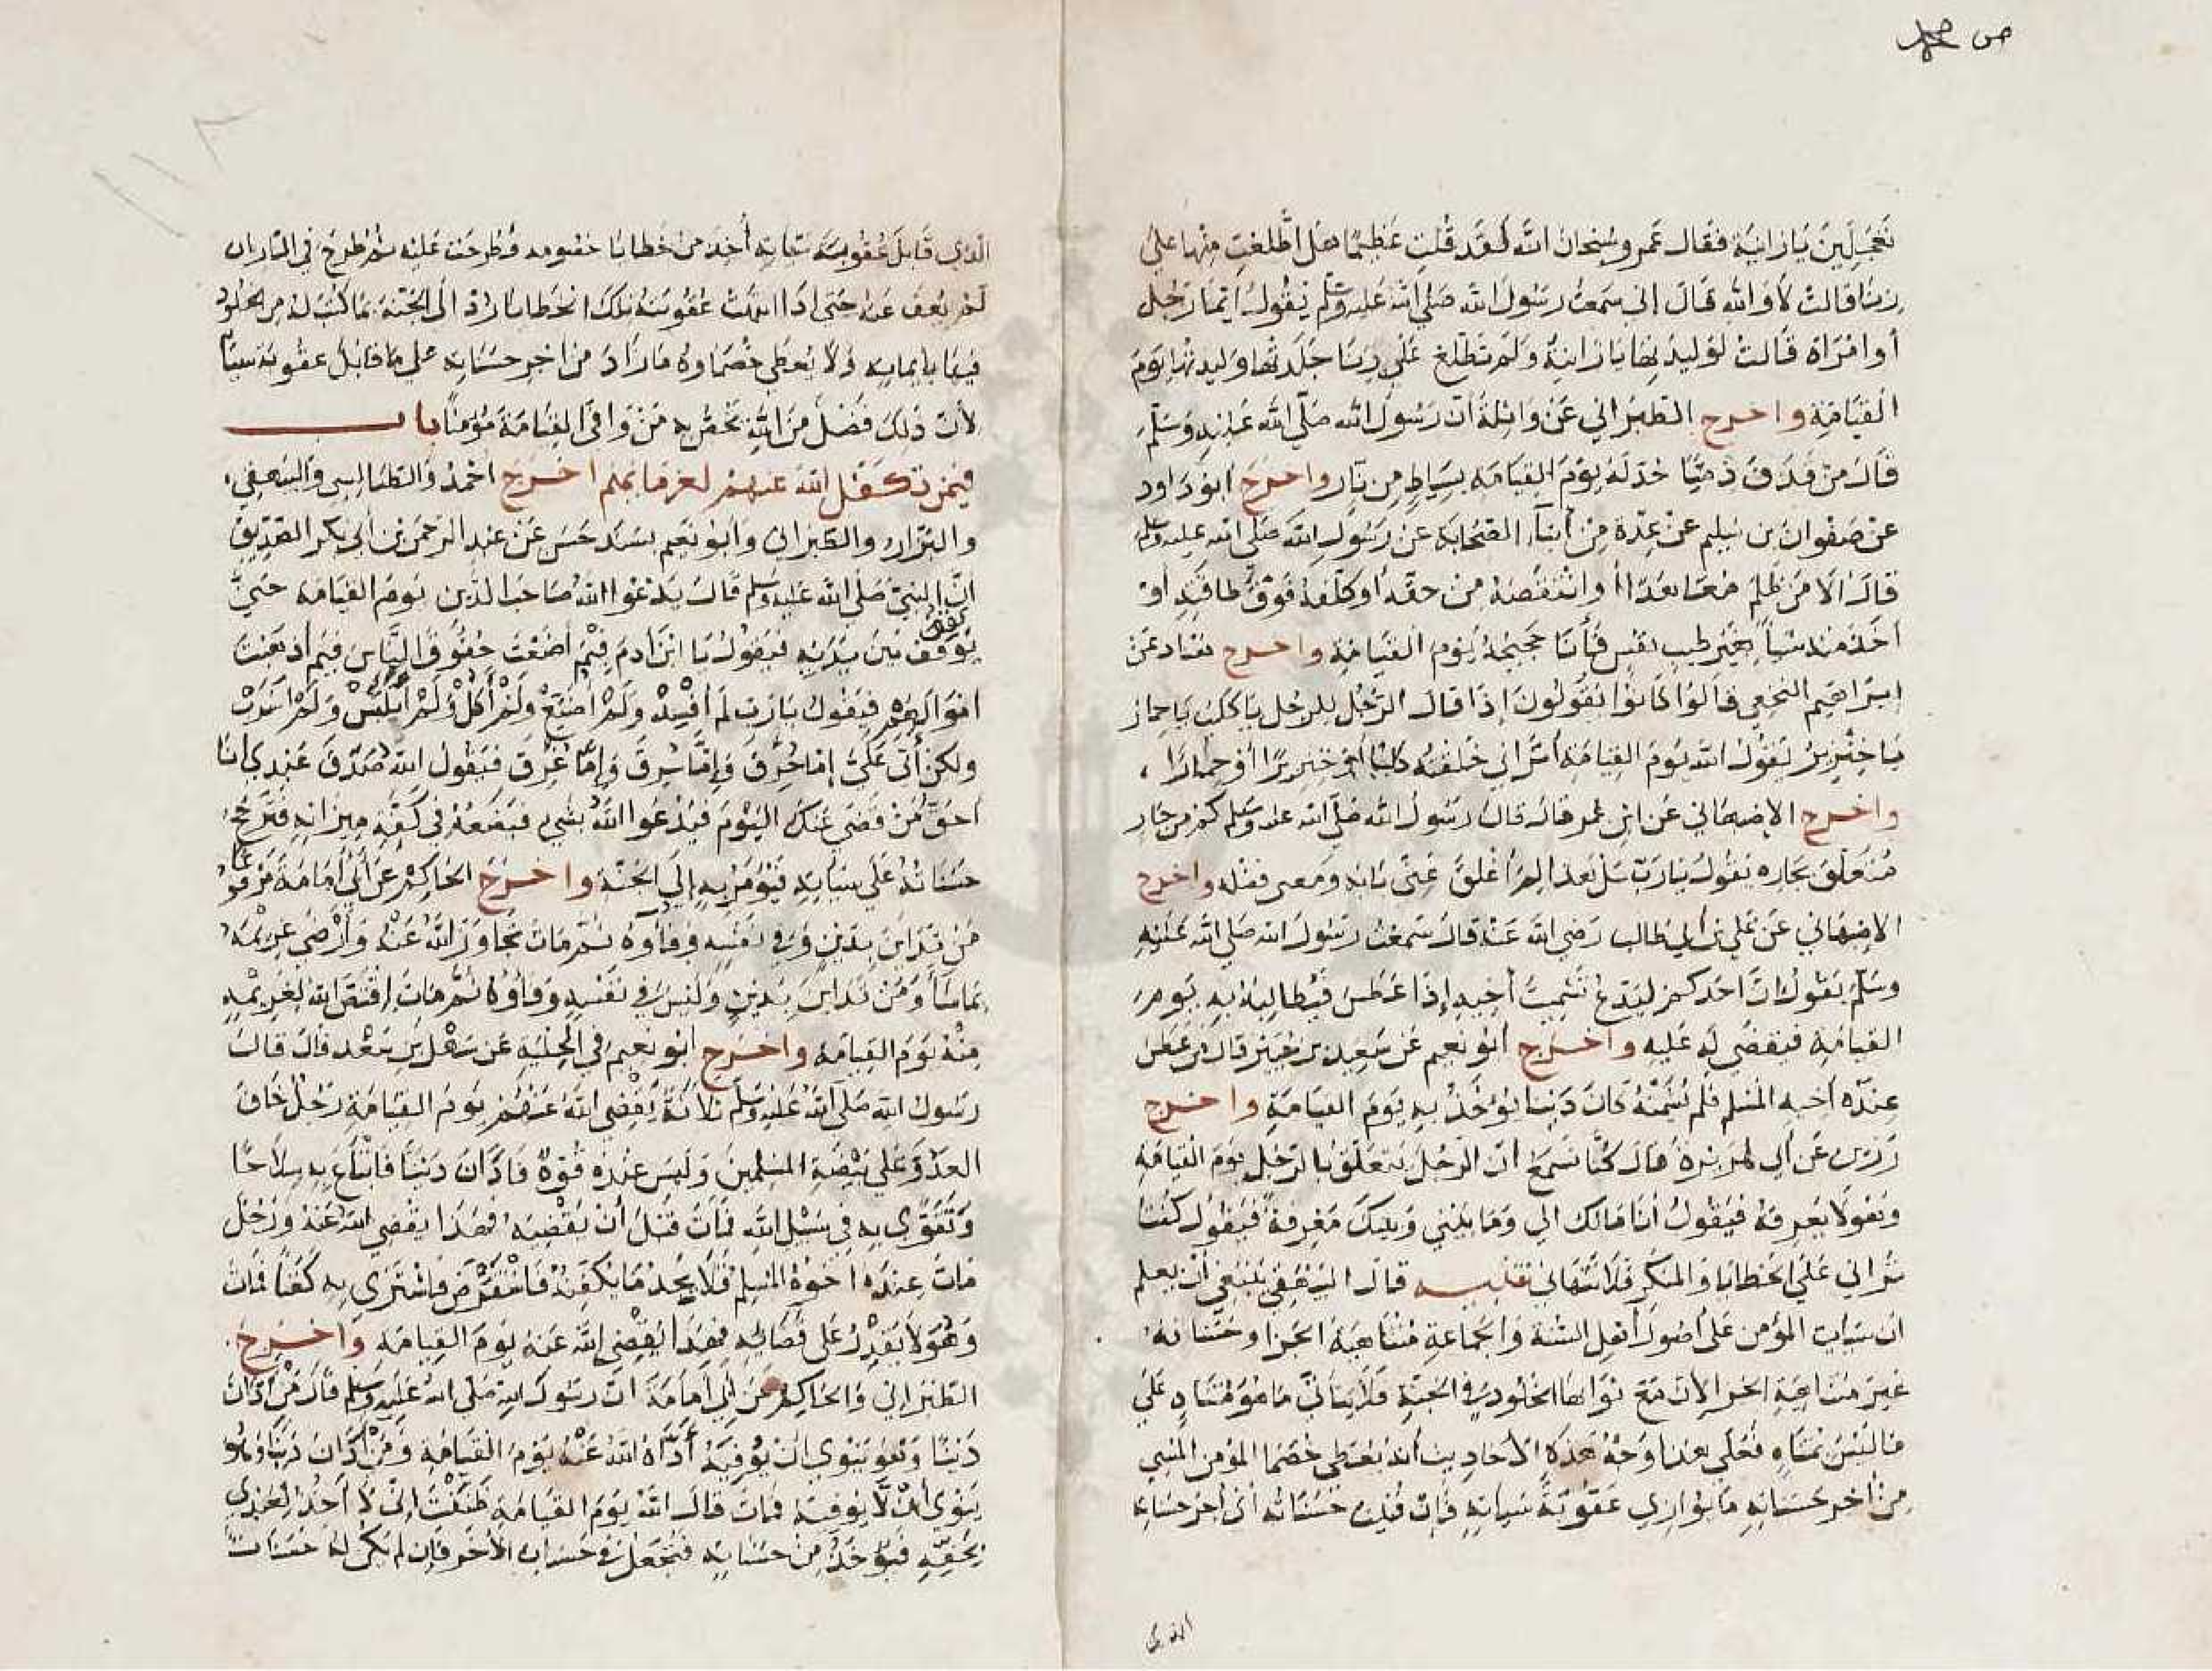 ص
تعجلين يا زانية فقال عمرو سبحان الله لقد قلت عظيما هل اطلعت منها على
زنا قالت لا والله قال اني سمعت رسول الله صلى الله عليه وسلم يقول ايما رجل
أو امراة قالت لوليدتها يا زانية ولم تطلع على زنا جلدتها وليدتها يوم
القيامة واخرج الطبراني عن واثلة ان رسول الله صلى الله عليه وسلم
قال من قذف ذميا حد له يوم القيامة بسياط من نار واخرج ابو داود
عن صفوان بن سليم عن عدة من أبناء الصحابة عن رسول الله صلى الله عليه وسلم
قال الا من ظلم معاهدا أو انتقصه من حقه أو كلفه فوق طاقته أو
اخذ منه شيأ بغير طيب نفس فأنا حجيجه يوم القيامة واخرج هناد عن
ابراهيم النخعي قالوا كانوا يقولون إذا قال الرجل للرجل يا كلب يا حمار
يا خنزير يقول الله يوم القيامة أتراني خلقته كلبا أو خنزيرا أو حمارا
واخرج الاصبهاني عن ابن عمر قال قال رسول الله صلى الله عليه وسلم كم من جار
متعلق بجاره يقول يا رب سل هذا لم أغلق عني بابه ومنعني فضله واخرج
الاصبهاني عن علي بن أبي طالب رضي الله عنه قال سمعت رسول الله صلى الله عليه
وسلم يقول ان احدكم ليدع تشميت أخيه إذا عطس فيطالبه به يوم
القيامة فيقضى له عليه واخرج ابو نعيم عن سعيد بن جبير قال من عطس
عنده أخيه المسلم فلم يشمته كان دينا يؤخذ به يوم القيامة واخرج
رزين عن أبي هريرة قال كنا نسمع ان الرجل يتعلق بالرجل يوم القيامة
وهو لا يعرفه فيقول له ما لك الي وما بيني وبينك معرفة فيقول كنت
تراني على الخطايا والمنكر فلا تنهاني تنبيه قال البيهقي ينبغي أن يعلم
ان سيات المؤمن على أصول أهل السنة والجماعة متناهية الجزا وحسناته
غير متناهية الجزا لأن مع ثوابها الخلود في الجنة فلا يأتي ما هو متناه على
ما ليس بمتناه فعلى هذا وجه هذه الأحاديث أنه يعطي خصما المؤمن المسي
من أجر حسناته ما يوازي عقوبة سياته فإن فنيت حسناته أي اجر حسناته
الذي
الذي قابل عقوبته سياته أخذ من خطايا خصومه فطرحت عليه ثم طرح في النار ان
لم يعف عنه حتى اذا انتهت عقوبته تلك الخطايا رد الى الجنة بما كتب له من الخلود
فيها بايمانه ولا يعطى خصماوه ما زاد من اجر حسناته على ما قابل عقوبة سياته
لأن ذلك فضل من الله يخص به من وافى القيامة مؤمنا باب
فيمن تكفل الله عنهم لغرمايهم اخرج احمد والطيالسي والبيهقي
والبزار والطبراني وابو نعيم بسند حسن عن عبد الرحمن بن أبي بكر الصديق
ان النبي صلى الله عليه وسلم قال يدعوا الله صاحب الدين يوم القيامة حتى
يوقف بين يديه فيقول يا ابن ادم فيم أضعت حقوق الناس فيم أذهبت
اموالهم فيقول يا رب لم أفسد ولم أضيع ولم أكل ولم ألبس ولم اشرب
ولكن أتى علي إما حرق وإما سرق وإما غرق فيقول الله صدق عبدي انا
احق من قضى عنك اليوم فيدعوا الله بشي فيضعه في كفة ميزانه فترجح
حسناته على سياته فيؤمر به إلى الجنة واخرج الحاكم عن أبي أمامة مرفوعا
من تداين بدين وفي نفسه وفاؤه ثم مات تجاوز الله عنه وأرضى غريمه
بما شأ ومن تداين بدين وليس في نفسه وفاؤه ثم مات اقتص الله لغريمه
منه يوم القيامة واخرج ابو نعيم في الحلية عن سهل بن سعد قال قال
رسول الله صلى الله عليه وسلم ثلاثة يقضي الله عنهم يوم القيامة رجل خاف
العدو على بيضة المسلمين وليس عنده قوة فادان دينا فابتاع به سلاحا
وتقوى به في سبيل الله فمات قبل أن يقضيه فهذا يقضي الله عنه ورجل
مات عنده اخوه المسلم فلا يجد ما يكفنه فاستقرض فاشترى به كفنا فمات
وهو لا يقدر على قضائه فهذا يقضي الله عنه يوم القيامة واخرج
الطبراني والحاكم عن أبي أمامة ان رسول الله صلى الله عليه وسلم قال من ادان
دينا وهو ينوي ان يوفيه أداه الله عنه يوم القيامة ومن ادان دينا وهو
ينوي ان لا يوفيه فمات قال الله يوم القيامة ظننت اني لا أخذ لعبدي
بحقه فيؤخذ من حسناته فتجعل في حسنات الأخر فإن لم يكن له حسنات